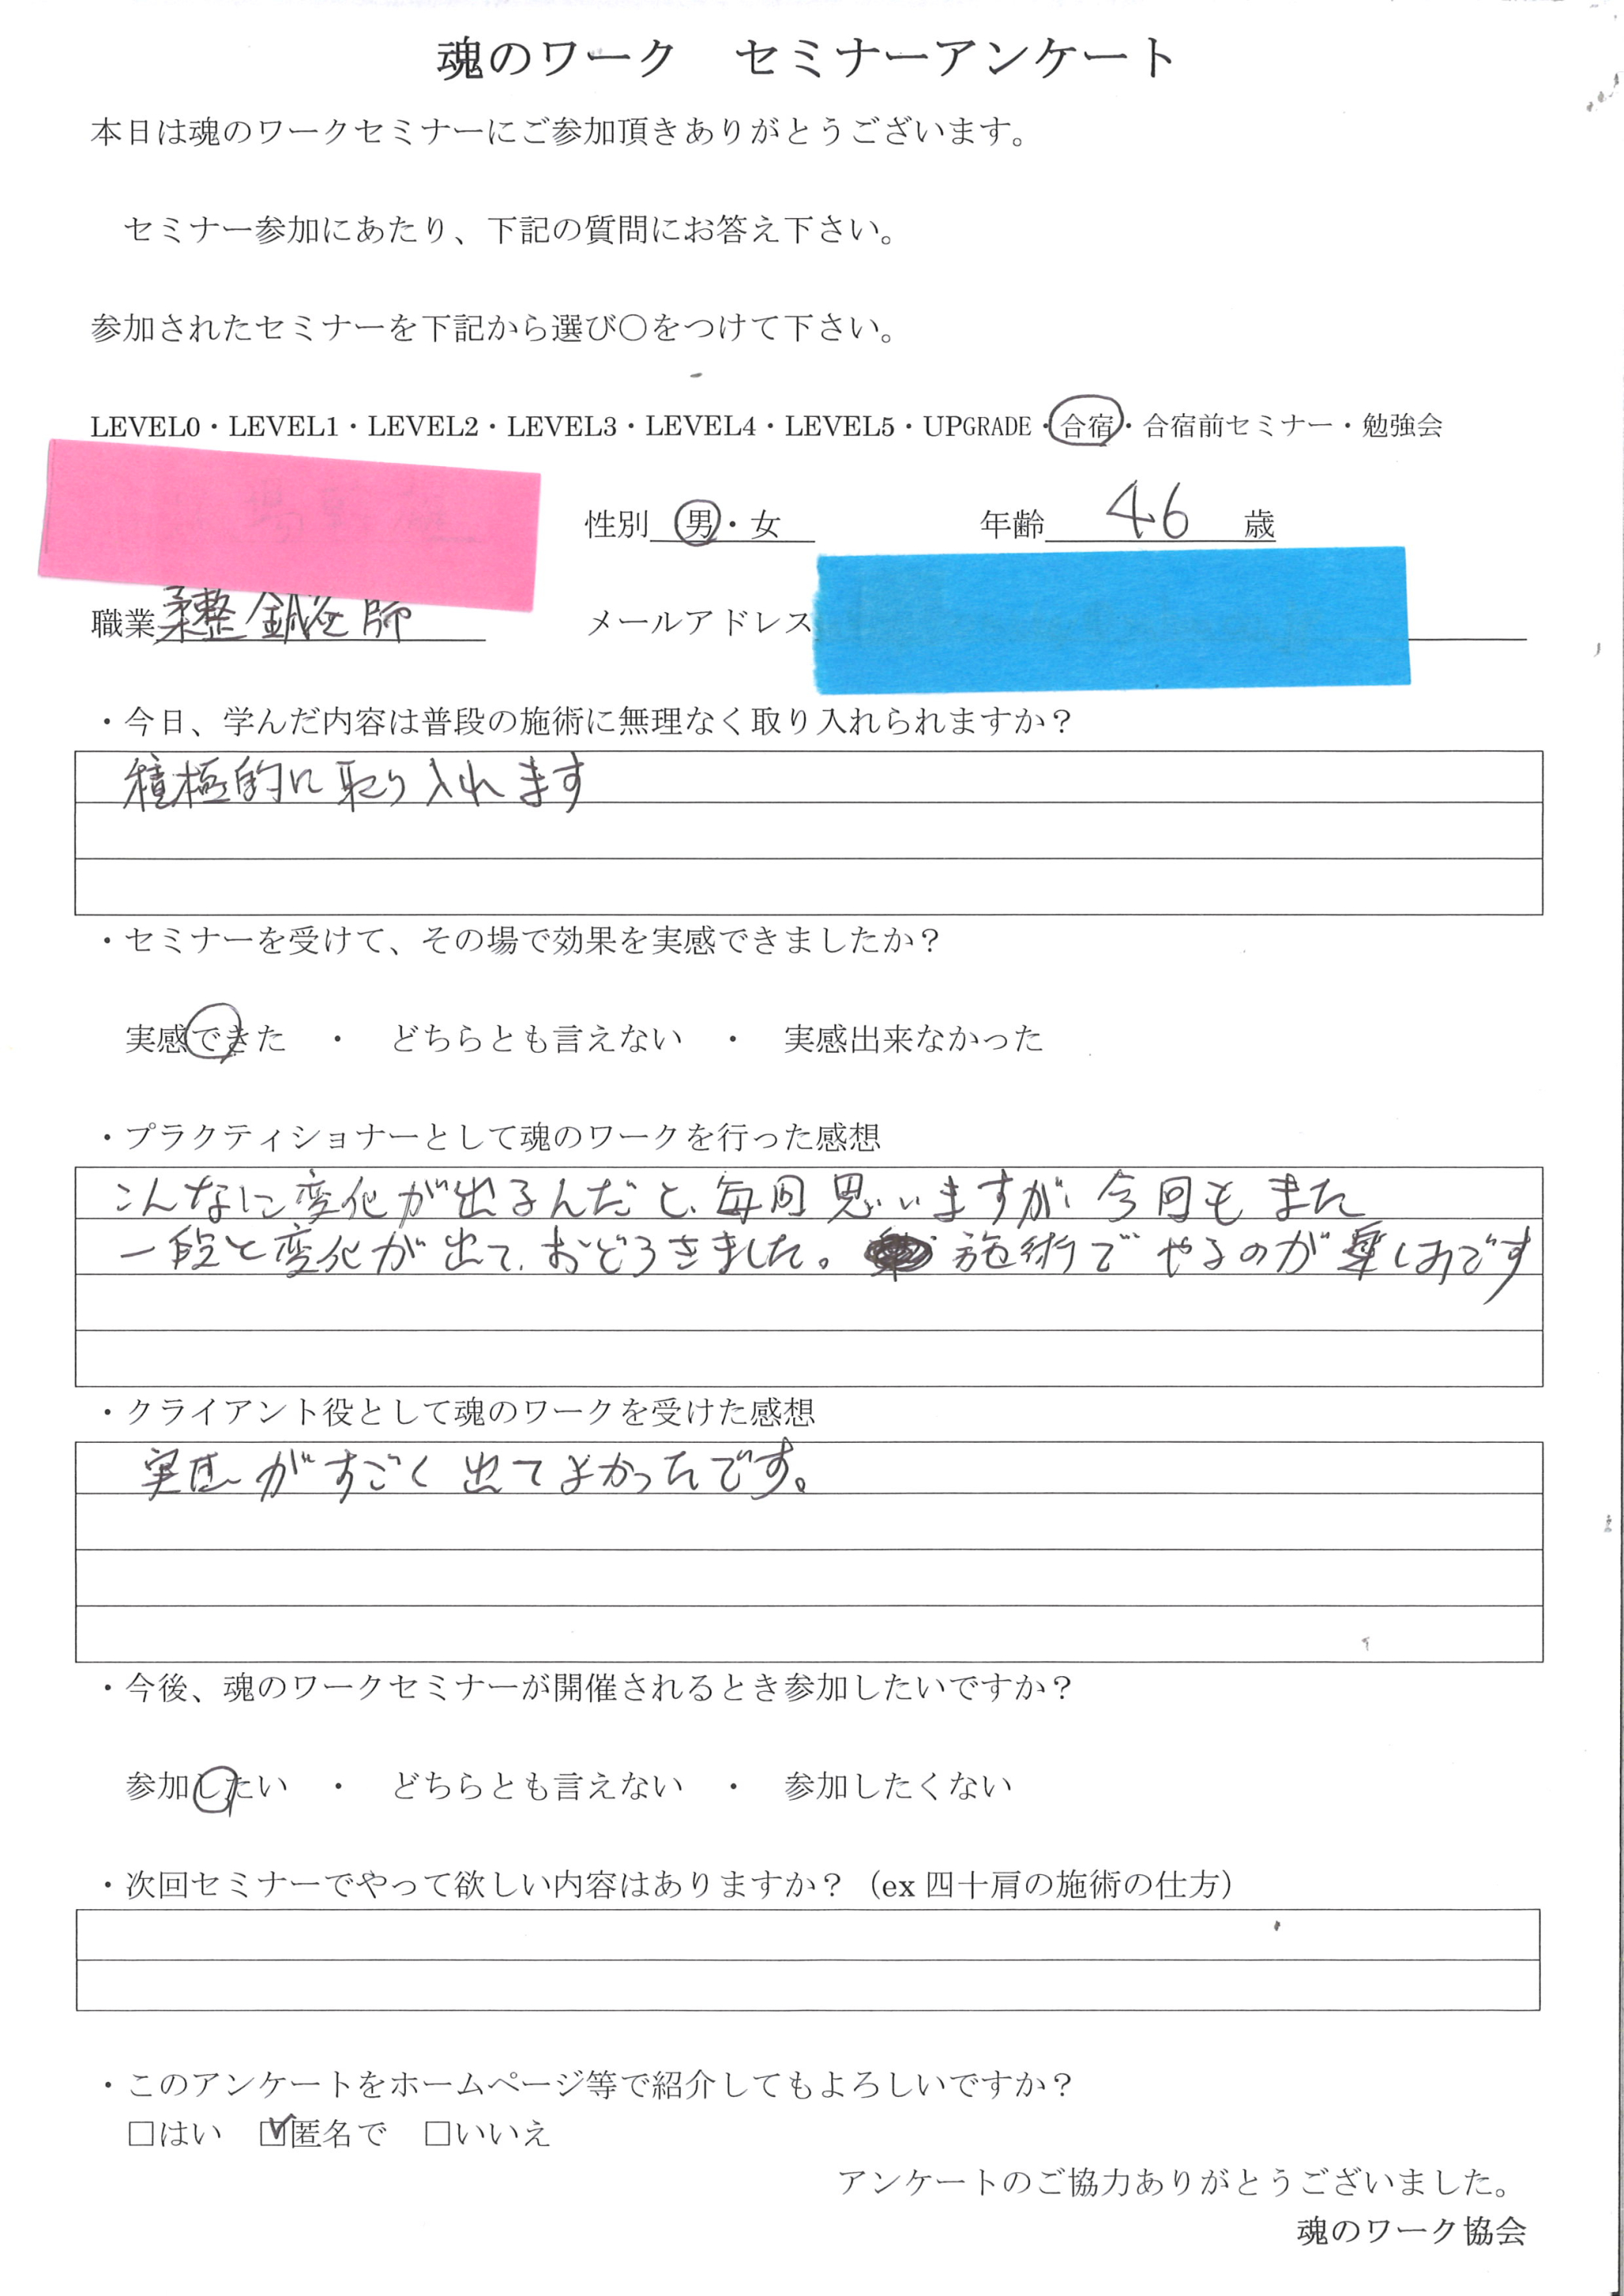 魂のワーク　セミナーアンケート
本日は魂のワークセミナーにご参加頂きありがとうございます。
セミナー参加にあたり、下記の質問にお答え下さい。
参加されたセミナーを下記から選び〇をつけて下さい。
LEVEL0・LEVEL1・LEVEL2・LEVEL3・LEVEL4・LEVEL5・UPGRADE・合宿・合宿前セミナー・勉強会
性別 男・女　年齢 46 歳
職業 柔整鍼灸師　メールアドレス
・今日、学んだ内容は普段の施術に無理なく取り入れられますか？
積極的に取り入れます
・セミナーを受けて、その場で効果を実感できましたか？
実感できた　・　どちらとも言えない　・　実感出来なかった
・プラクティショナーとして魂のワークを行った感想
こんなに変化が出るんだと、毎回思いますが、今回もまた
一段と変化が出て、おどろきました。施術でやるのが楽しみです
・クライアント役として魂のワークを受けた感想
実感がすごく出てよかったです。
・今後、魂のワークセミナーが開催されるとき参加したいですか？
参加したい　・　どちらとも言えない　・　参加したくない
・次回セミナーでやって欲しい内容はありますか？（ex 四十肩の施術の仕方）
・このアンケートをホームページ等で紹介してもよろしいですか？
□はい　☑匿名で　□いいえ
アンケートのご協力ありがとうございました。
魂のワーク協会